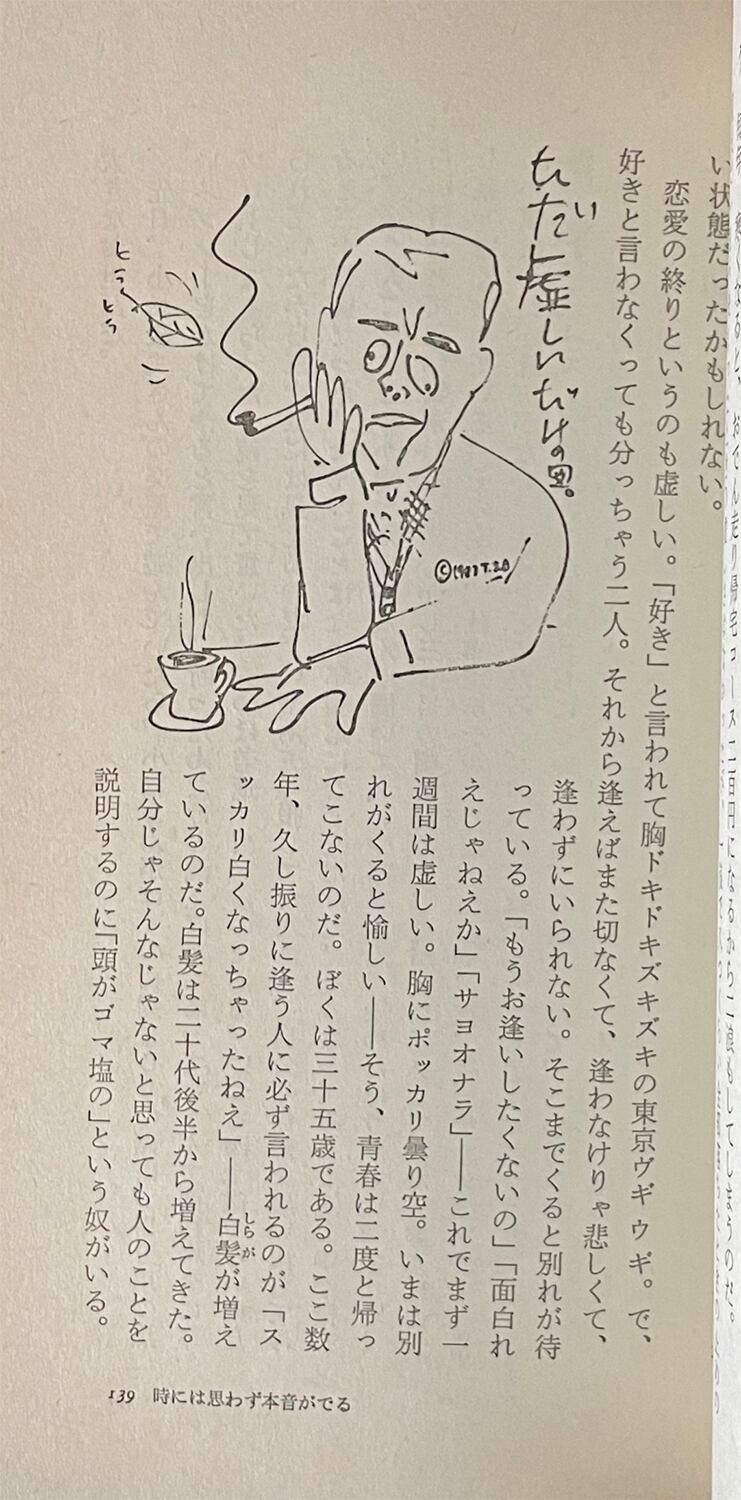 い状態だったかもしれない。
恋愛の終りというのも虚しい。「好き」と言われて胸ドキドキズキズキの東京ヴギウギ。で、
好きと言わなくっても分っちゃう二人。それから逢えばまた切なくて、逢わなけりゃ悲しくて、
逢わずにいられない。そこまでくると別れが待
っている。「もうお逢いしたくないの」「面白れ
えじゃねえか」「サヨオナラ」――これでまず一
週間は虚しい。胸にポッカリ曇り空。いまは別
れがくると愉しい――そう、青春は二度と帰っ
てこないのだ。ぼくは三十五歳である。ここ数
年、久し振りに逢う人に必ず言われるのが「ス
ッカリ白くなっちゃったねえ」――白髪が増え
しらが
ているのだ。白髪は二十代後半から増えてきた。
自分じゃそんなじゃないと思っても人のことを
説明するのに「頭がゴマ塩の」という奴がいる。
虚しいだけの図。
ヒラ
ヒラ
139 時には思わず本音がでる